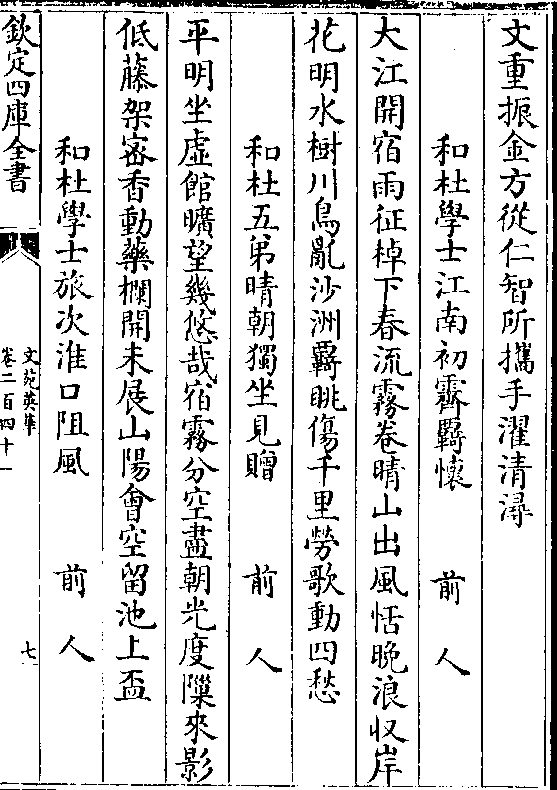 文重振金方從仁智所攜手濯清潯
和杜學士江南初霽羇懷　前人
大江開宿雨征棹下春流霧卷晴山出風恬晩浪収岸
花明水樹川鳥亂沙洲羇眺傷千里勞歌動四愁
和杜五弟晴朝獨坐見贈　前人
平明坐虚館曠望幾悠哉宿霧分空盡朝光度隟來影
低藤架宻香動藥欄開未展山陽會空留池上盃
和杜學士旅次淮口阻風　前人
欽定四庫全書
文苑英華
卷二百四十一
七